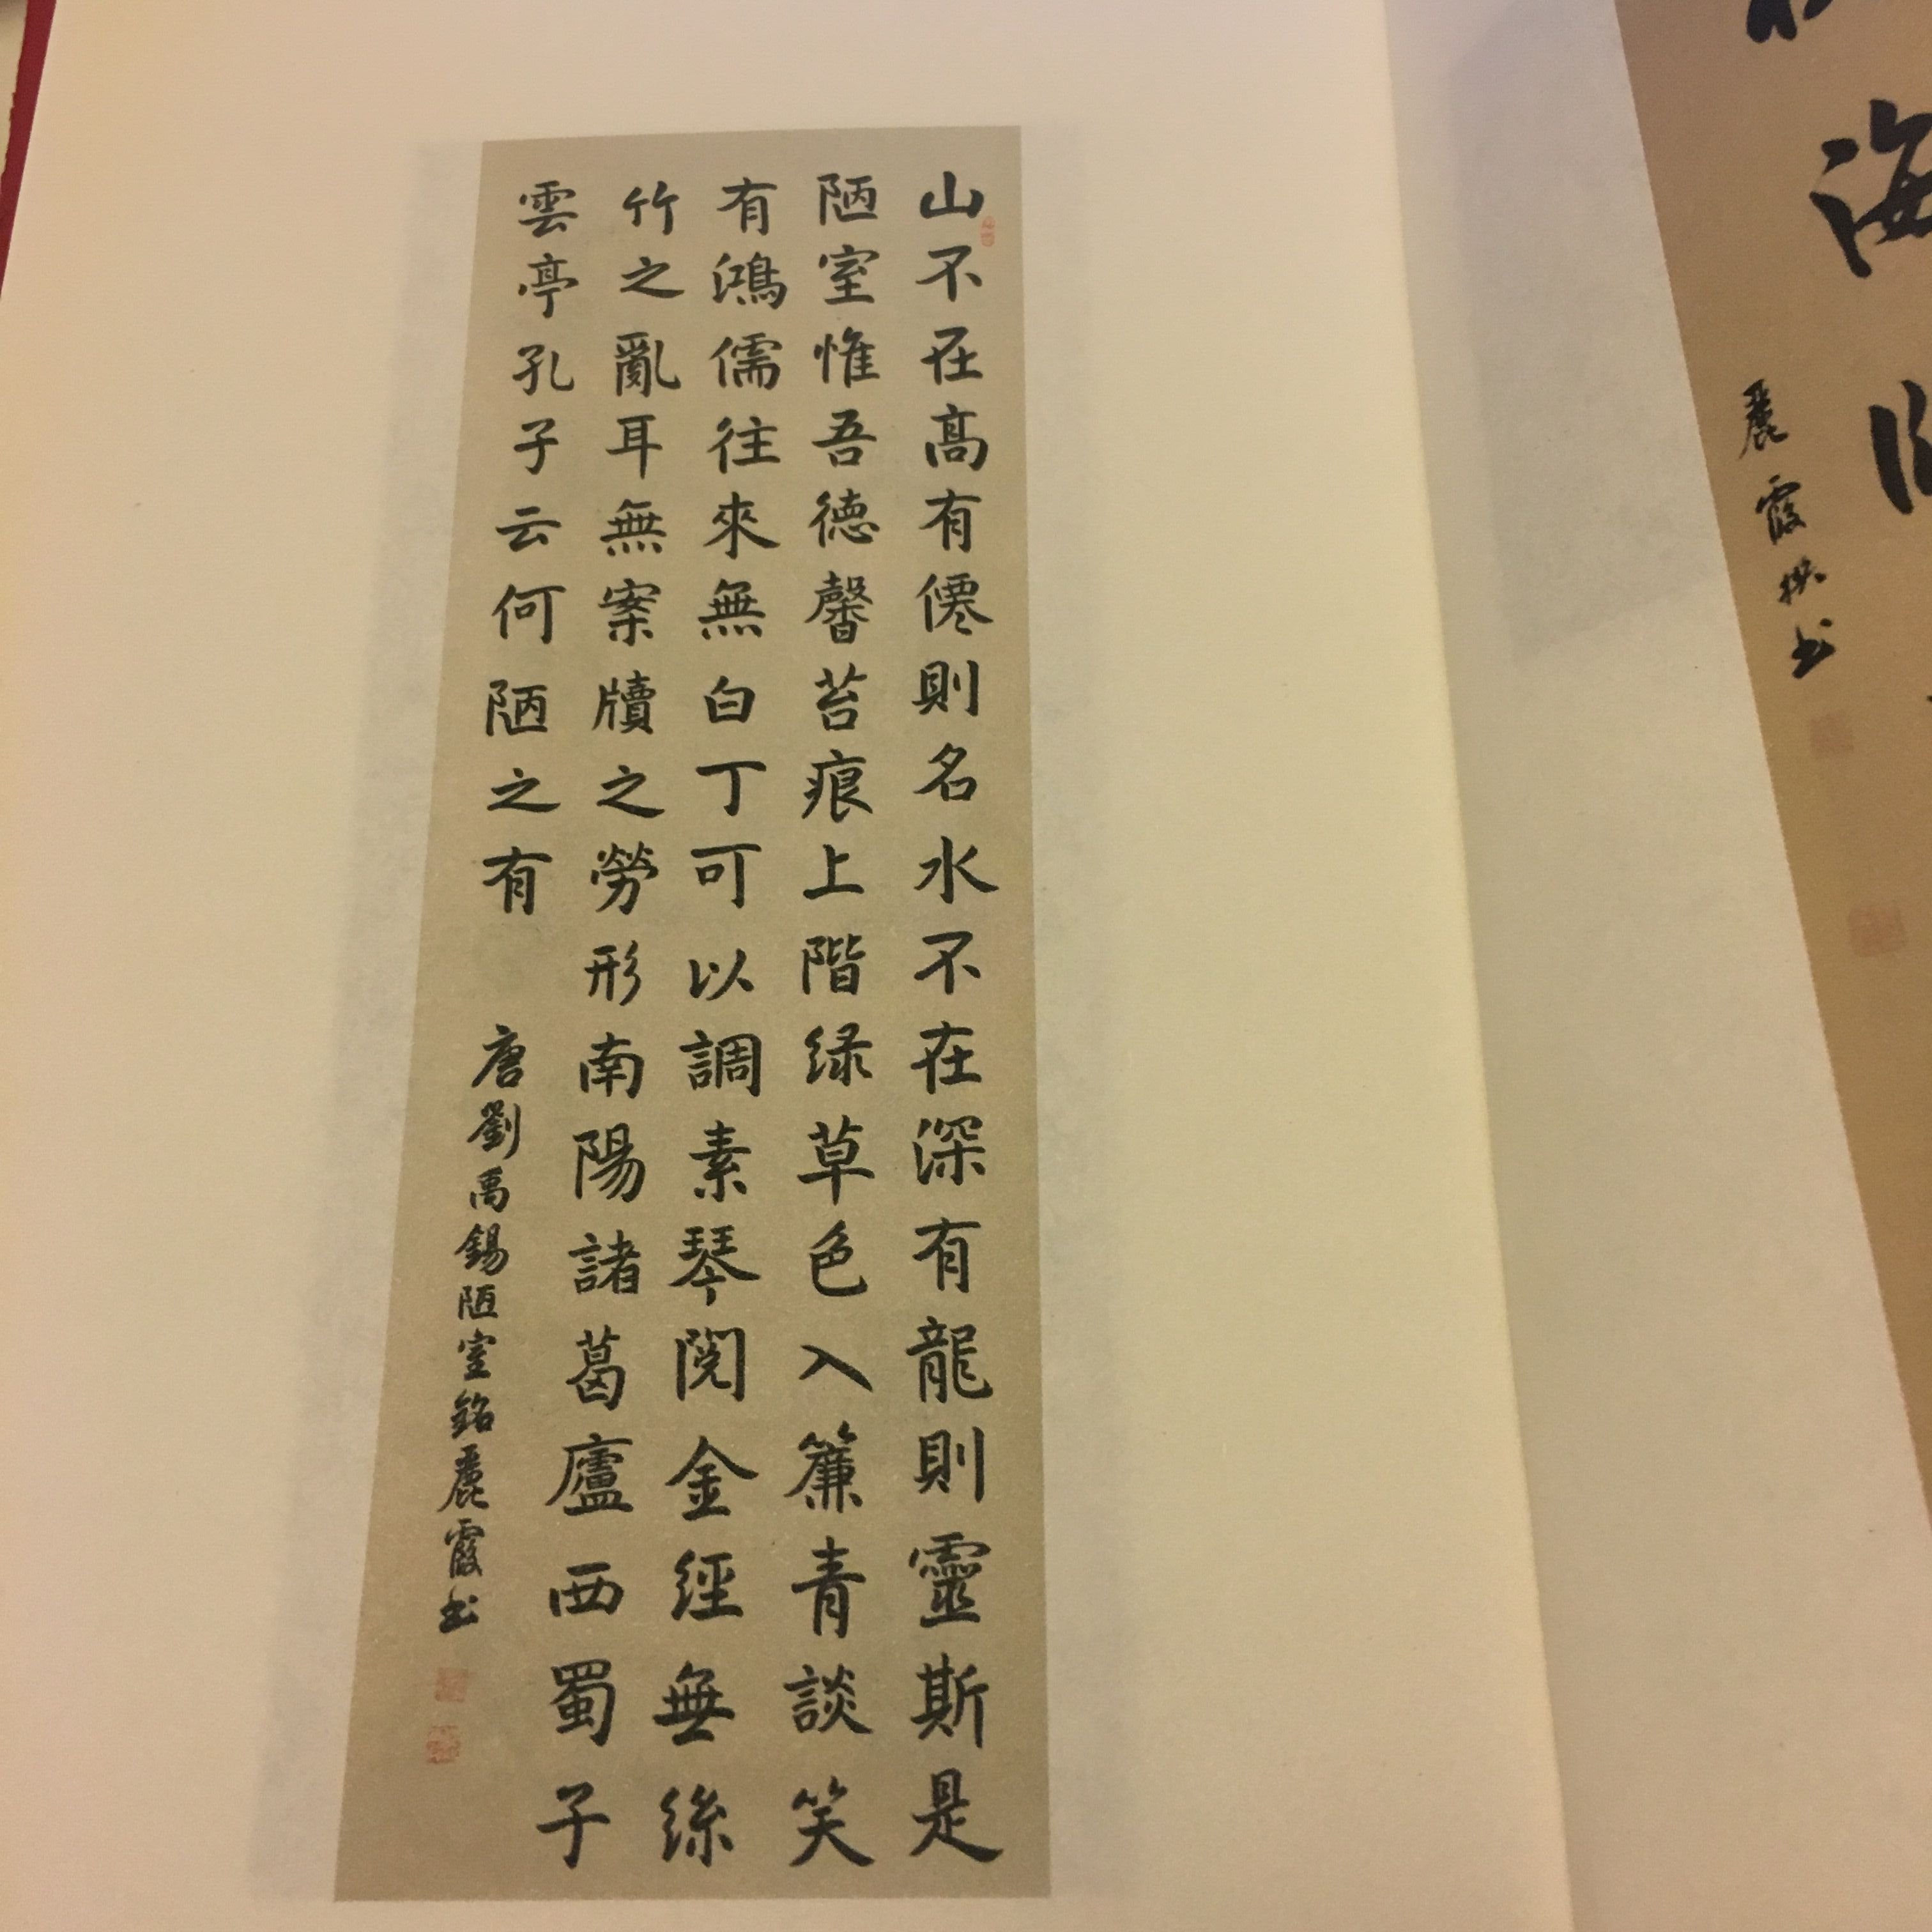 山不在高有僊則名水不在深有龍則靈斯是
陋室惟吾德馨苔痕上階绿草色入簾青談笑
有鴻儒往來無白丁可以調素琴閱金經無絲
竹之亂耳無案牘之勞形南陽諸葛廬西蜀子
雲亭孔子云何陋之有
唐劉禹錫陋室銘麗霞书
海
麗霞撰书